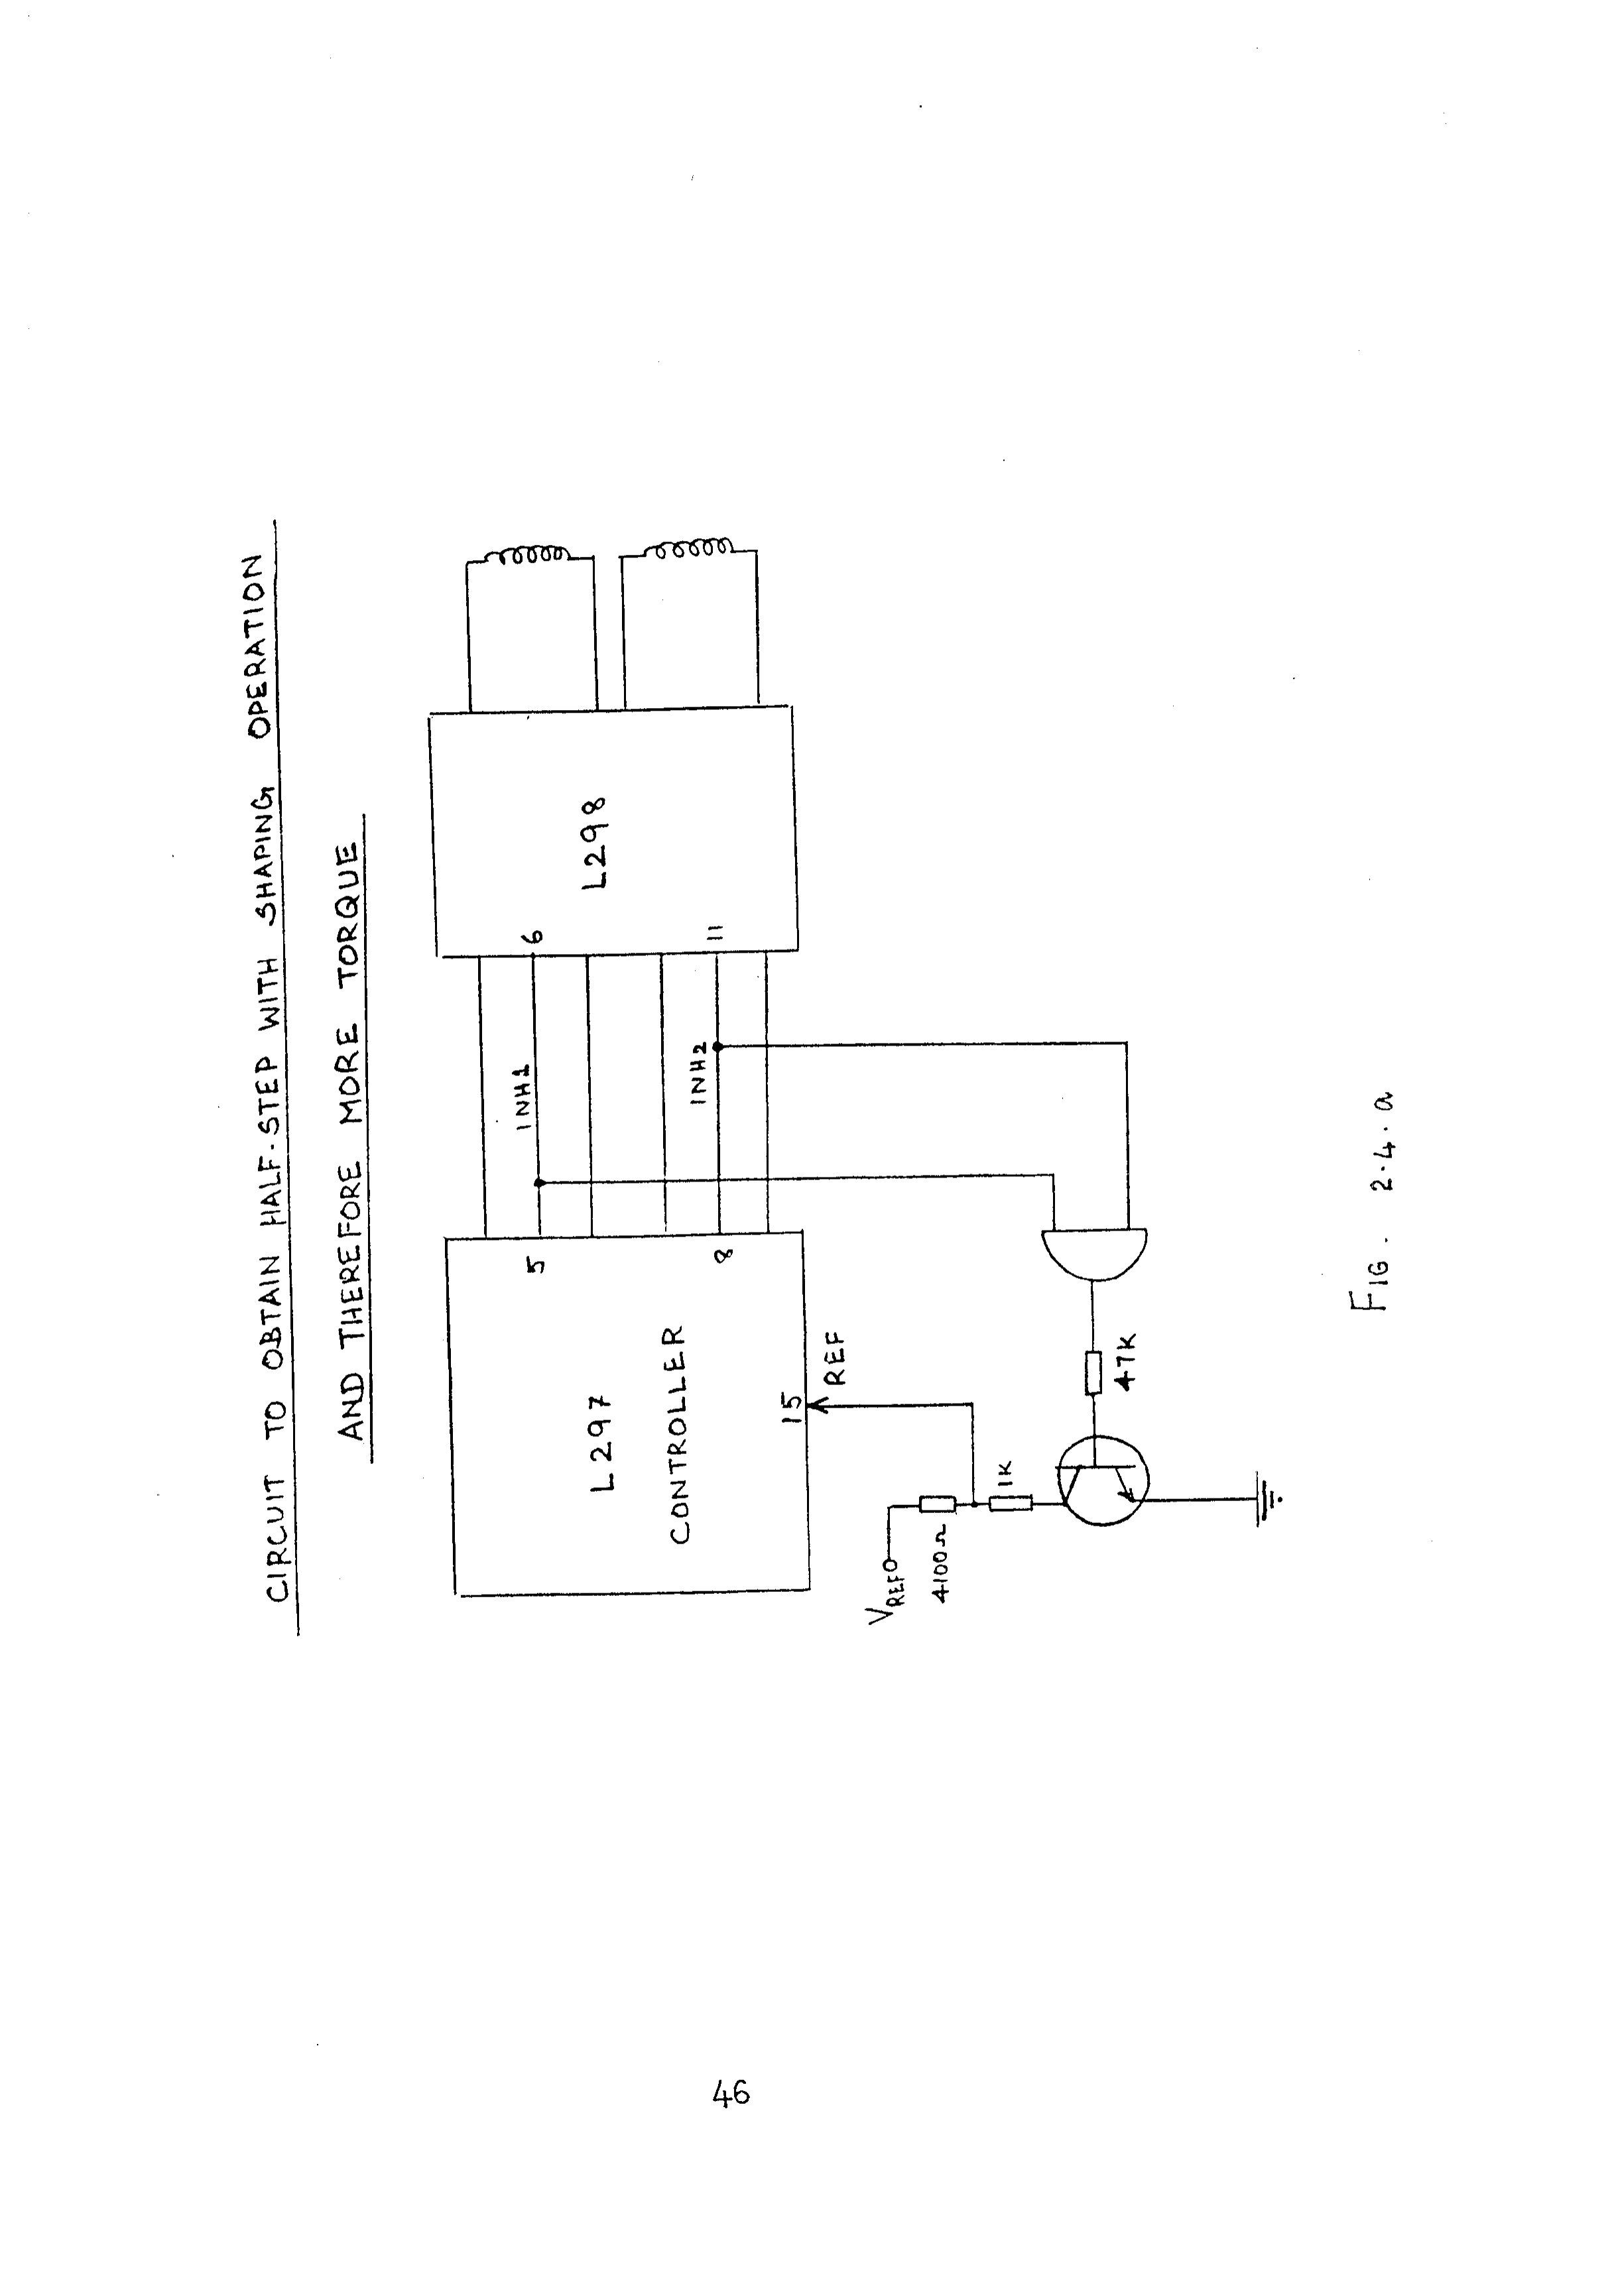 CIRCUIT TO OBTAIN HALF-STEP WITH SHAPING OPERATION
AND THEREFORE MORE TORQUE
L297
CONTROLLER
5
8
15
REF
INH1
INH2
6
11
L298
VREF
4100Ω
1K
47K
FIG. 2.4.a
46